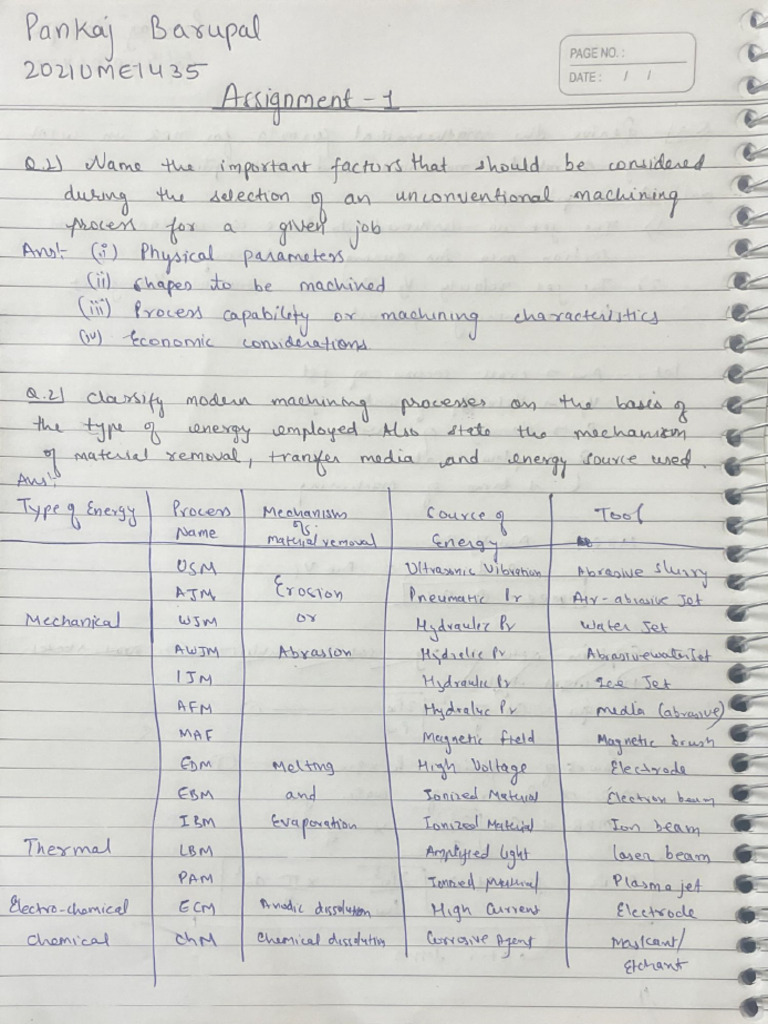 Pankaj Barupal
2021UME1435
PAGE NO. :
DATE : / /
Assignment - 1
Q.2) Name the important factors that should be considered
during the selection of an unconventional machining
process for a given job
Ans:- (i) Physical parameters
(ii) Shapes to be machined
(iii) Process capability or machining characteristics
(iv) Economic considerations
Q.2) Classify modern machining processes on the basis of
the type of energy employed Also state the mechanism
of material removal, transfer media and energy source used.
Ans:-
Type of Energy Process Mechanism Source of Tool
Name of material removal Energy
USM Ultrasonic Vibration Abrasive Slurry
AJM Erosion Pneumatic Pr Air-abrasive Jet
Mechanical WJM or Hydraulic Pr Water Jet
AWJM Abrasion Hydrolic Pr Abrasivewater Jet
IJM Hydraulic Pr Ice Jet
AFM Hydralyc Pr media (abrasive)
MAF Magnetic field Magnetic brush
EDM Melting High Voltage Electrode
EBM and Ionized Material Electron beam
IBM Evaporation Ionized Material Ion beam
Thermal LBM Amplyfied light laser beam
PAM Ionized Material Plasma jet
Electro-chemical ECM Anodic dissolution High Current Electrode
Chemical ChM Chemical dissolution Corrosive Agent Maskant/
Etchant